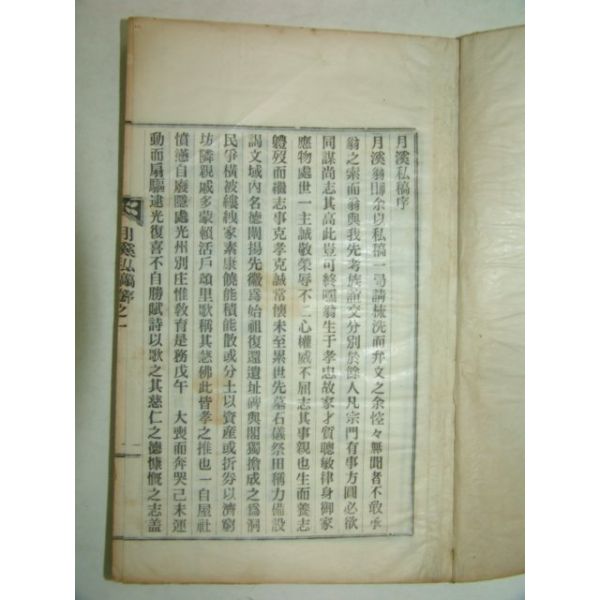 月溪私稿序
月溪翁賜余以私稿一局請梳洗而弁文之余悾々無聞者不敢承
翁之索而翁與我先考族誼交分別於餘人凡宗門有事方圓必欲
同謀尚志其高此豈可終嘿翁生于孝忠故家才質聰敏律身御家
應物處世一主誠敬榮辱不二心權威不屈志其事親也生而養志
軆歿而繼志事克孝克誠常懷未至累世先墓石儀祭田稱力備設
謁文域內名德闡揚先徽爲始祖復還遺址碑與閣獨擔成之爲洞
民爭橫被縷絏家素康饒能積能散或分土以資産或折券以濟窮
坊隣親戚多蒙賴活戶頌里歌稱其慈佛此皆孝之推也一自屋社
憤惋自廢隱處光州別庄惟敎育是務戊午　大喪而奔哭己未運
動而扇驅逮光復喜不自勝賦詩以歌之其慈仁之德慷慨之志盖
月溪私稿序之一